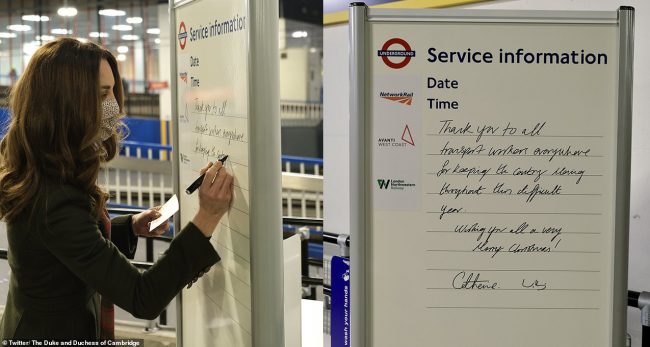 Service information
Date
Time
Thank you to all
transport workers everywhere
UNDERGROUND
Service information
Date
Time
NetworkRail
AVANTI
WEST COAST
London
Northeastern
Railway
Thank you to all
transport workers everywhere
for keeping the country moving
throughout this difficult
year.
Wishing you all a very
Merry Christmas!
Catherine
wash your hands
© Twitter/ The Duke and Duchess of Cambridge